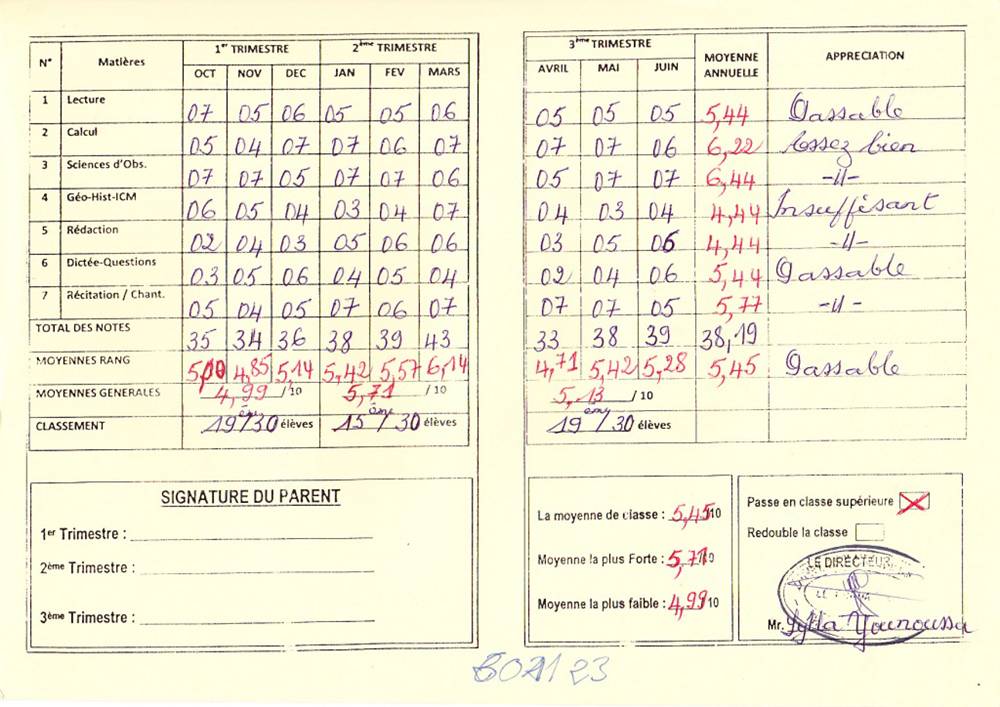 N° Matières 1er TRIMESTRE 2ème TRIMESTRE 3ème TRIMESTRE MOYENNE ANNUELLE APPRECIATION
OCT NOV DEC JAN FEV MARS AVRIL MAI JUIN
1 Lecture 07 05 06 05 05 06 05 05 05 5,44 Passable
2 Calcul 05 04 07 07 06 07 07 07 06 6,22 Assez bien
3 Sciences d'Obs. 07 07 05 07 07 06 05 07 07 6,44 -//-
4 Géo-Hist-ICM 06 05 04 03 04 07 04 03 04 4,44 Insuffésant
5 Rédaction 02 04 03 05 06 06 03 05 06 4,44 -//-
6 Dictée-Questions 03 05 06 04 05 04 02 04 06 5,44 Passable
7 Récitation / Chant. 05 04 05 07 06 07 07 07 05 5,77 -//-
TOTAL DES NOTES 35 34 36 38 39 43 33 38 39 38,19
MOYENNES RANG 5,00 4,85 5,14 5,42 5,57 6,14 4,71 5,42 5,28 5,45 Passable
MOYENNES GENERALES 4,99 /10 5,71 /10 5,13 /10
CLASSEMENT 19ème/30 élèves 15ème/30 élèves 19ème/30 élèves
SIGNATURE DU PARENT
1er Trimestre :
2ème Trimestre :
3ème Trimestre :
La moyenne de classe : 5,45/10
Moyenne la plus Forte : 5,71/10
Moyenne la plus faible : 4,99/10
Passe en classe supérieure
Redouble la classe
LE DIRECTEUR
Mr. Sylla Younoussa